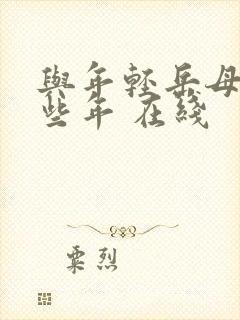 與年輕岳母
些年 在綫
粟烈